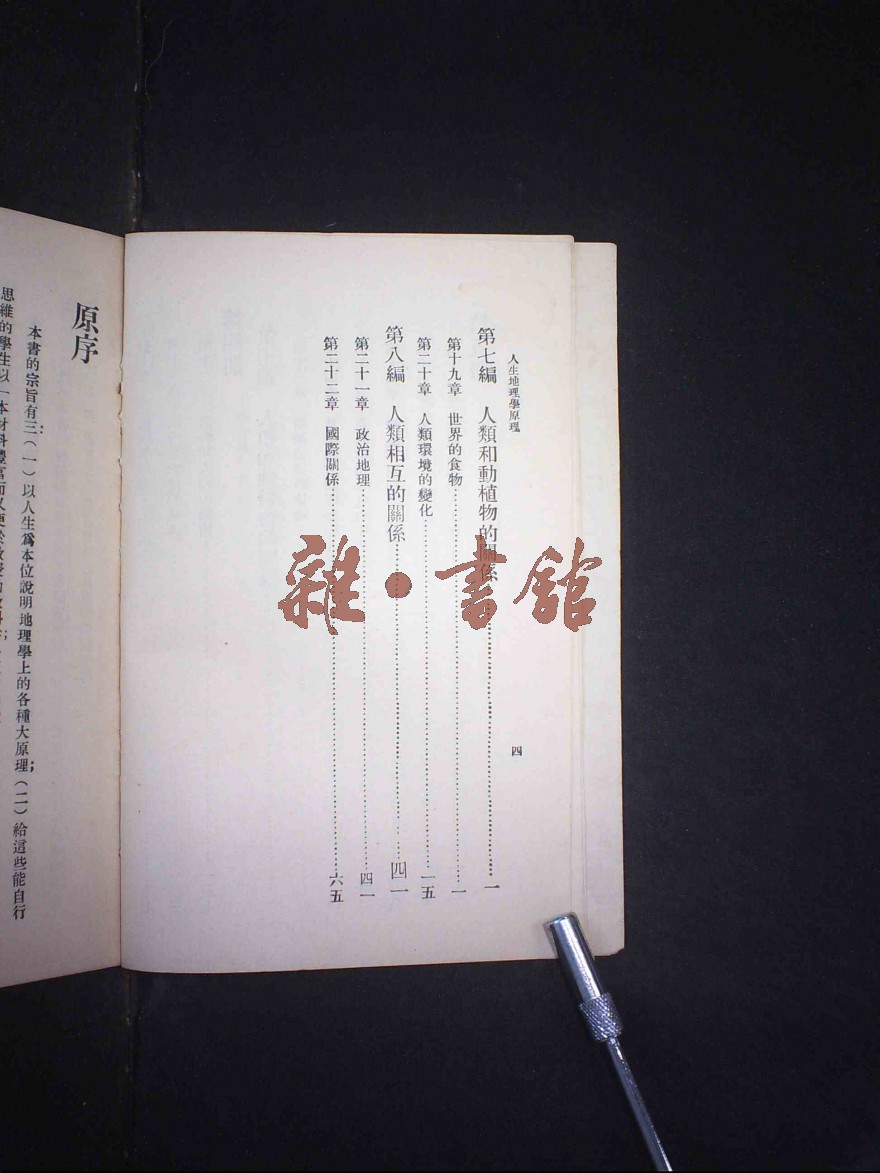 人生地理學原理
四
第七編 人類和動植物的關係 一
第十九章 世界的食物 一
第二十章 人類環境的變化 一五
第八編 人類相互的關係 四一
第二十一章 政治地理 四一
第二十二章 國際關係 六五
雜·書館
原序
本書的宗旨有三:(一)以人生爲本位說明地理學上的各種大原理;(二)給這些能自行
思維的學生以一本材料豐富而又便於教授的